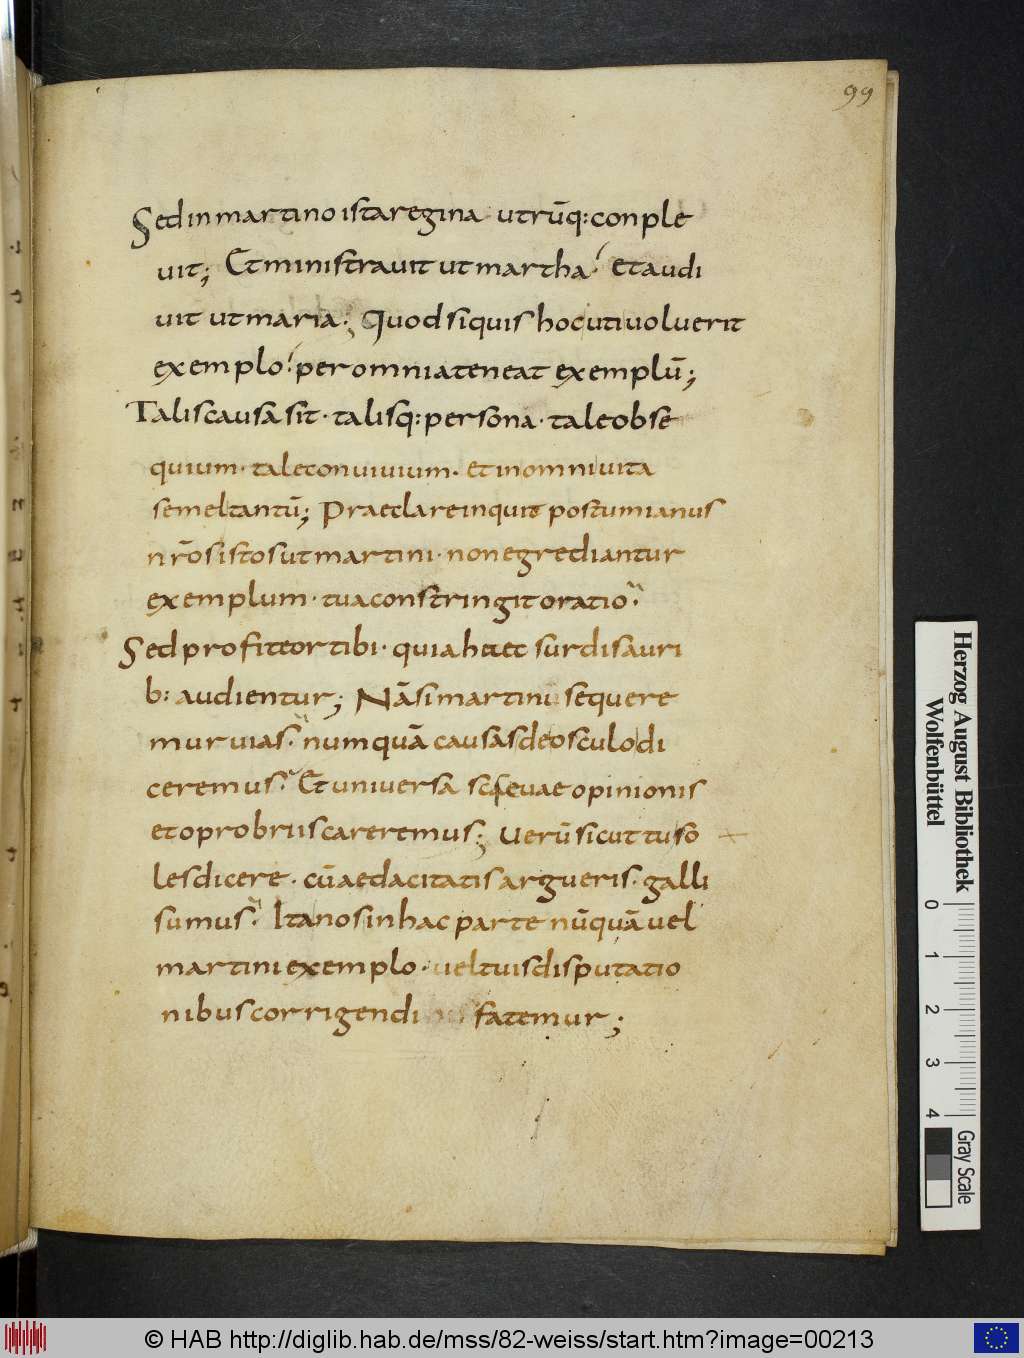 99
Sed in martino ista regina utrūq: conple
uit; Et ministrauit ut martha. Et audi
uit ut maria; Quod si quis hoc uti uoluerit
exemplo. per omnia teneat exemplū;
Talis causa sit · talisq: persona · tale obse
quium · tale conuiuium · et in omni uita
semel tantū; Praeclare inquit postumianus
nr̄os istos ut martini · non egrediantur
exemplum · tua constringit oratio.
Sed profiteor tibi · quia haec surdis auri
b: audientur; Nā si martini sequere
mur uias. numquā causas de osculo di
ceremus. Et uniuersa scaeuae opinionis
et oprobriis careremus; Uerū sicut tu so
les dicere · cū aedacitatis argueris · galli
sumus. Ita nos in hac parte nūquā uel
martini exemplo · uel tuis disputatio
nibus corrigendi fatemur;
Herzog August Bibliothek
Wolfenbüttel
0 1 2 3 4
Gray Scale
© HAB http://diglib.hab.de/mss/82-weiss/start.htm?image=00213